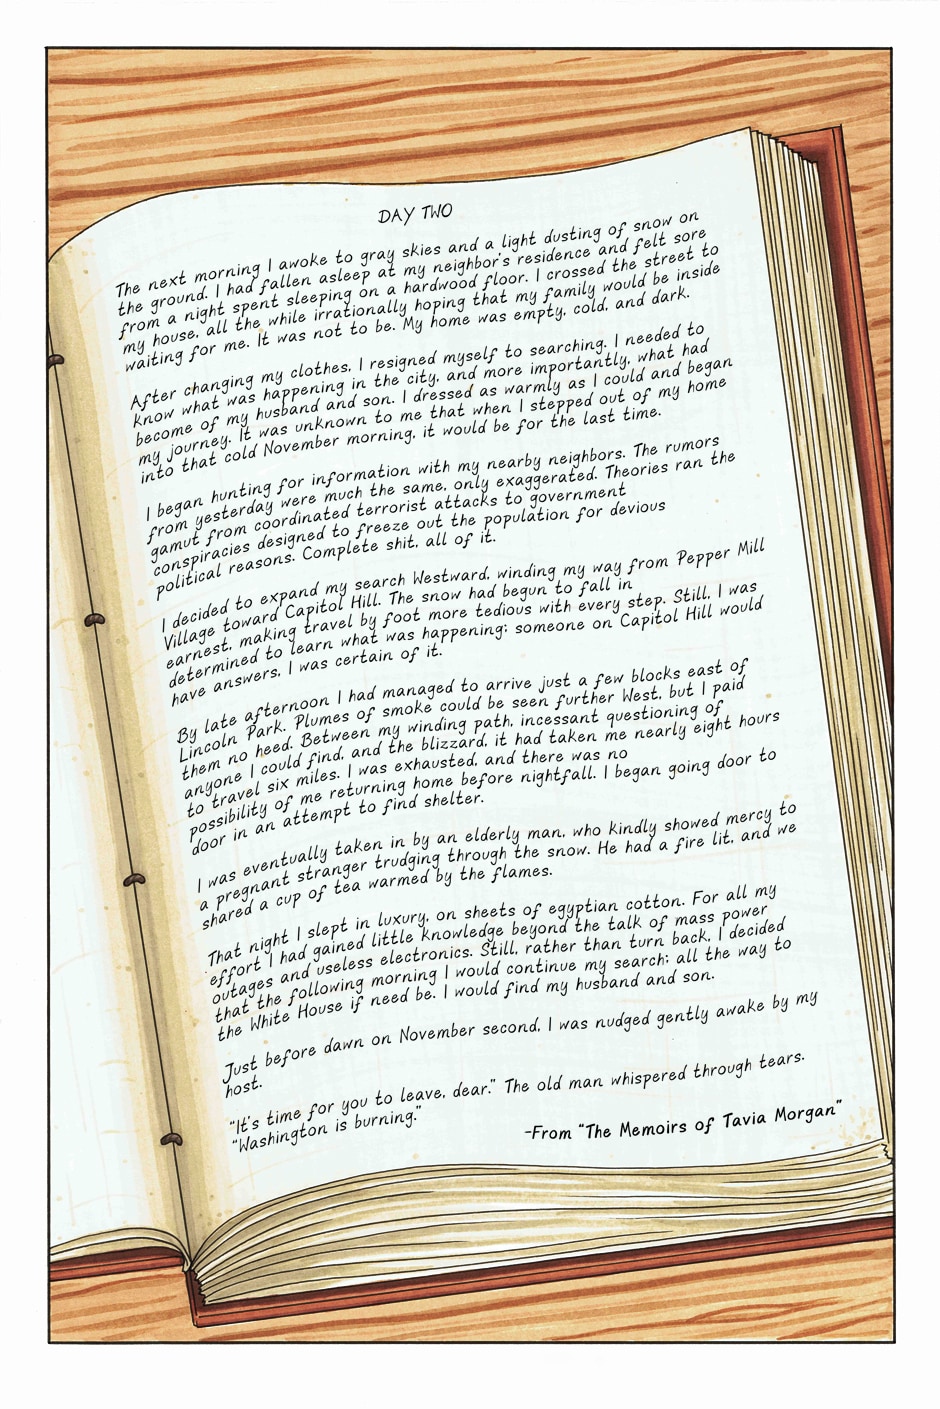 DAY TWO
The next morning I awoke to gray skies and a light dusting of snow on
the ground. I had fallen asleep at my neighbor's residence and felt sore
from a night spent sleeping on a hardwood floor. I crossed the street to
my house, all the while irrationally hoping that my family would be inside
waiting for me. It was not to be. My home was empty, cold, and dark.
After changing my clothes, I resigned myself to searching. I needed to
know what was happening in the city, and more importantly, what had
become of my husband and son. I dressed as warmly as I could and began
my journey. It was unknown to me that when I stepped out of my home
into that cold November morning, it would be for the last time.
I began hunting for information with my nearby neighbors. The rumors
from yesterday were much the same, only exaggerated. Theories ran the
gamut from coordinated terrorist attacks to government
conspiracies designed to freeze out the population for devious
political reasons. Complete shit, all of it.
I decided to expand my search Westward, winding my way from Pepper Mill
Village toward Capitol Hill. The snow had begun to fall in
earnest, making travel by foot more tedious with every step. Still, I was
determined to learn what was happening; someone on Capitol Hill would
have answers, I was certain of it.
By late afternoon I had managed to arrive just a few blocks east of
Lincoln Park. Plumes of smoke could be seen further West, but I paid
them no heed. Between my winding path, incessant questioning of
anyone I could find, and the blizzard, it had taken me nearly eight hours
to travel six miles. I was exhausted, and there was no
possibility of me returning home before nightfall. I began going door to
door in an attempt to find shelter.
I was eventually taken in by an elderly man, who kindly showed mercy to
a pregnant stranger trudging through the snow. He had a fire lit, and we
shared a cup of tea warmed by the flames.
That night I slept in luxury, on sheets of egyptian cotton. For all my
effort I had gained little knowledge beyond the talk of mass power
outages and useless electronics. Still, rather than turn back, I decided
that the following morning I would continue my search; all the way to
the White House if need be. I would find my husband and son.
Just before dawn on November second, I was nudged gently awake by my
host.
"It's time for you to leave, dear." The old man whispered through tears.
"Washington is burning."
-From "The Memoirs of Tavia Morgan"